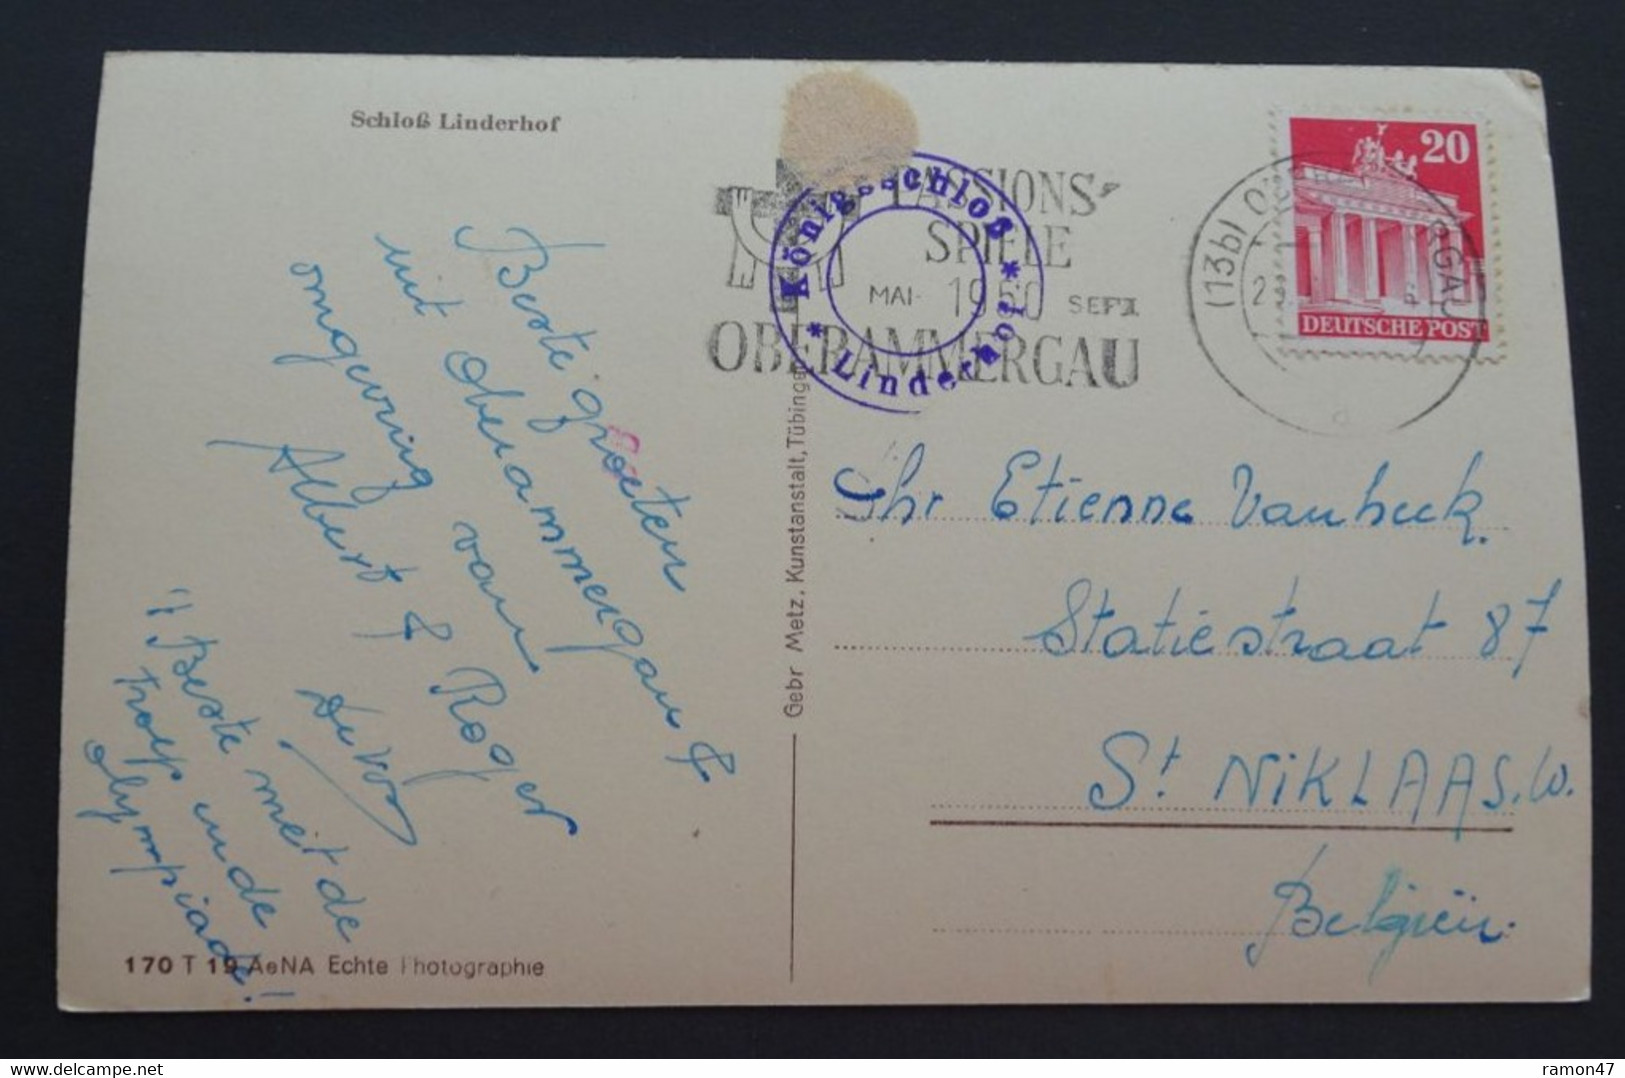 Schloß Linderhof
Beste groeten
uit Oberammergau &
omgeving van
Albert & Roger
De Vos
"Beste met de
in de
olympiade!
170 T 19 AeNA Echte Photographie
Gebr Metz, Kunstanstalt, Tübingen
Königsschloß * Linderhof *
PASSIONS-
SPIELE
MAI - 1950 SEPT.
OBERAMMERGAU
(13b) OBERAMMERGAU
20
DEUTSCHE POST
Dhr Etienne Vanbeek.
Statiestraat 87
St NiKLAAS.W.
België.
delcampe.net
ramon47